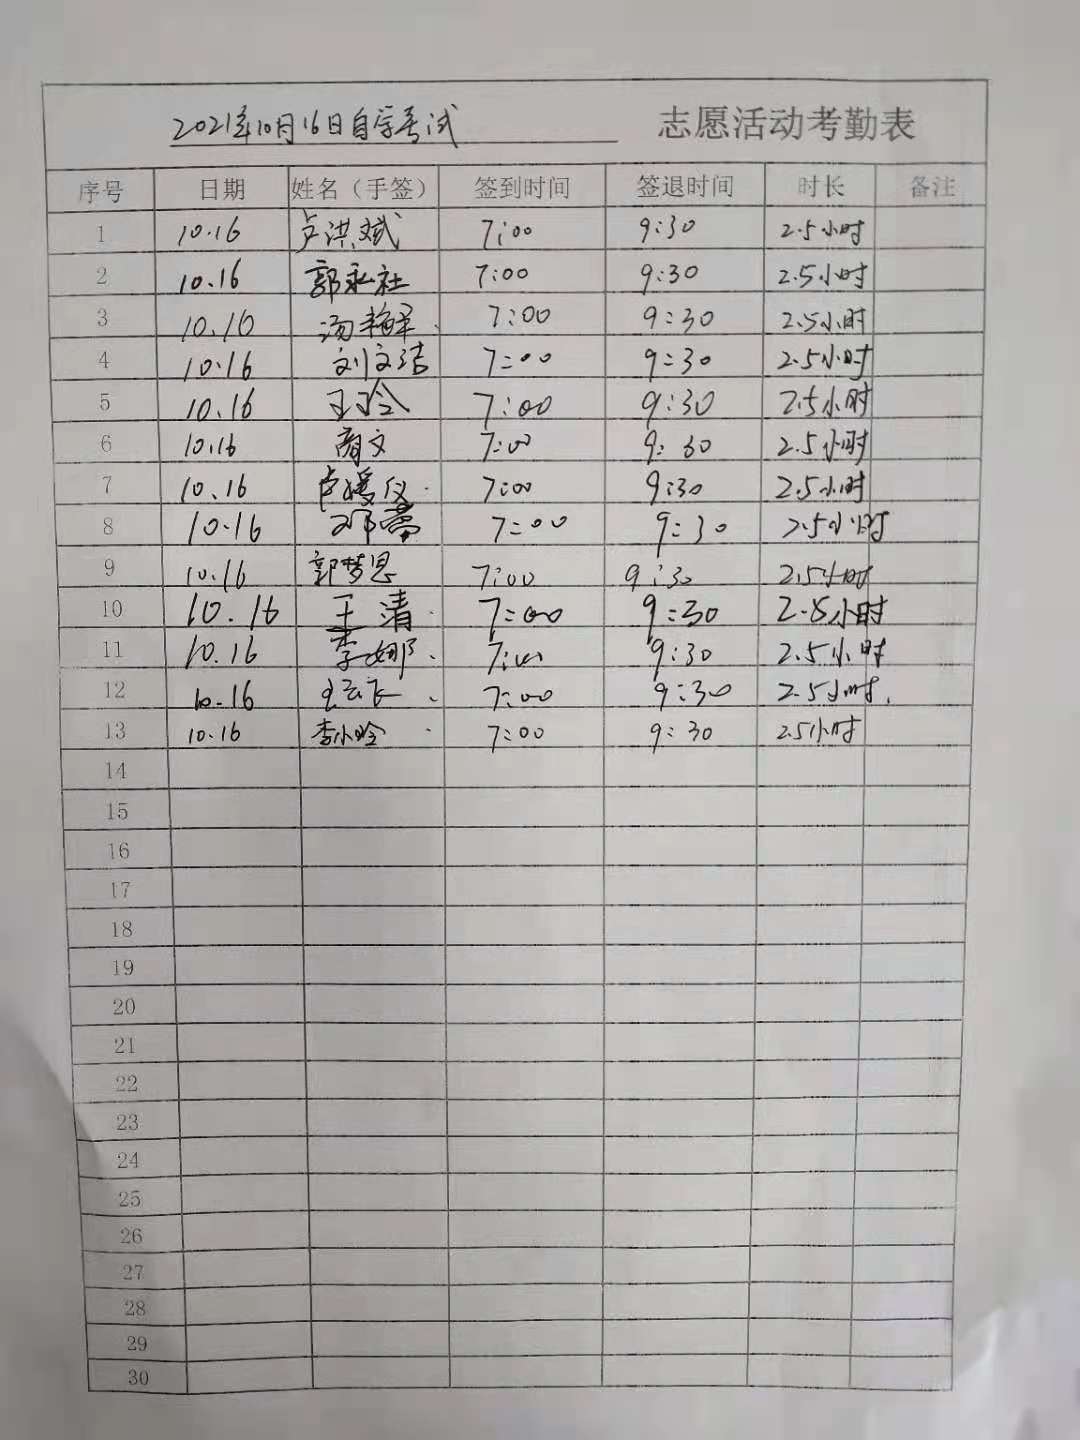 2021年10月16日自学考试 志愿活动考勤表
序号 日期 姓名（手签） 签到时间 签退时间 时长 备注
1 10.16 卢洪斌 7:00 9:30 2.5小时
2 10.16 郭永社 7:00 9:30 2.5小时
3 10.16 汤艳军 7:00 9:30 2.5小时
4 10.16 刘文洁 7:00 9:30 2.5小时
5 10.16 7:00 9:30 2.5小时
6 10.16 7:00 9:30 2.5小时
7 10.16 卢媛仪 7:00 9:30 2.5小时
8 10.16 邓蒿 7:00 9:30 2.5小时
9 10.16 郭梦思 7:00 9:30 2.5小时
10 10.16 王清 7:00 9:30 2.5小时
11 10.16 李娜 7:00 9:30 2.5小时
12 10.16 7:00 9:30 2.5小时
13 10.16 李小吟 7:00 9:30 2.5小时
14
15
16
17
18
19
20
21
22
23
24
25
26
27
28
29
30